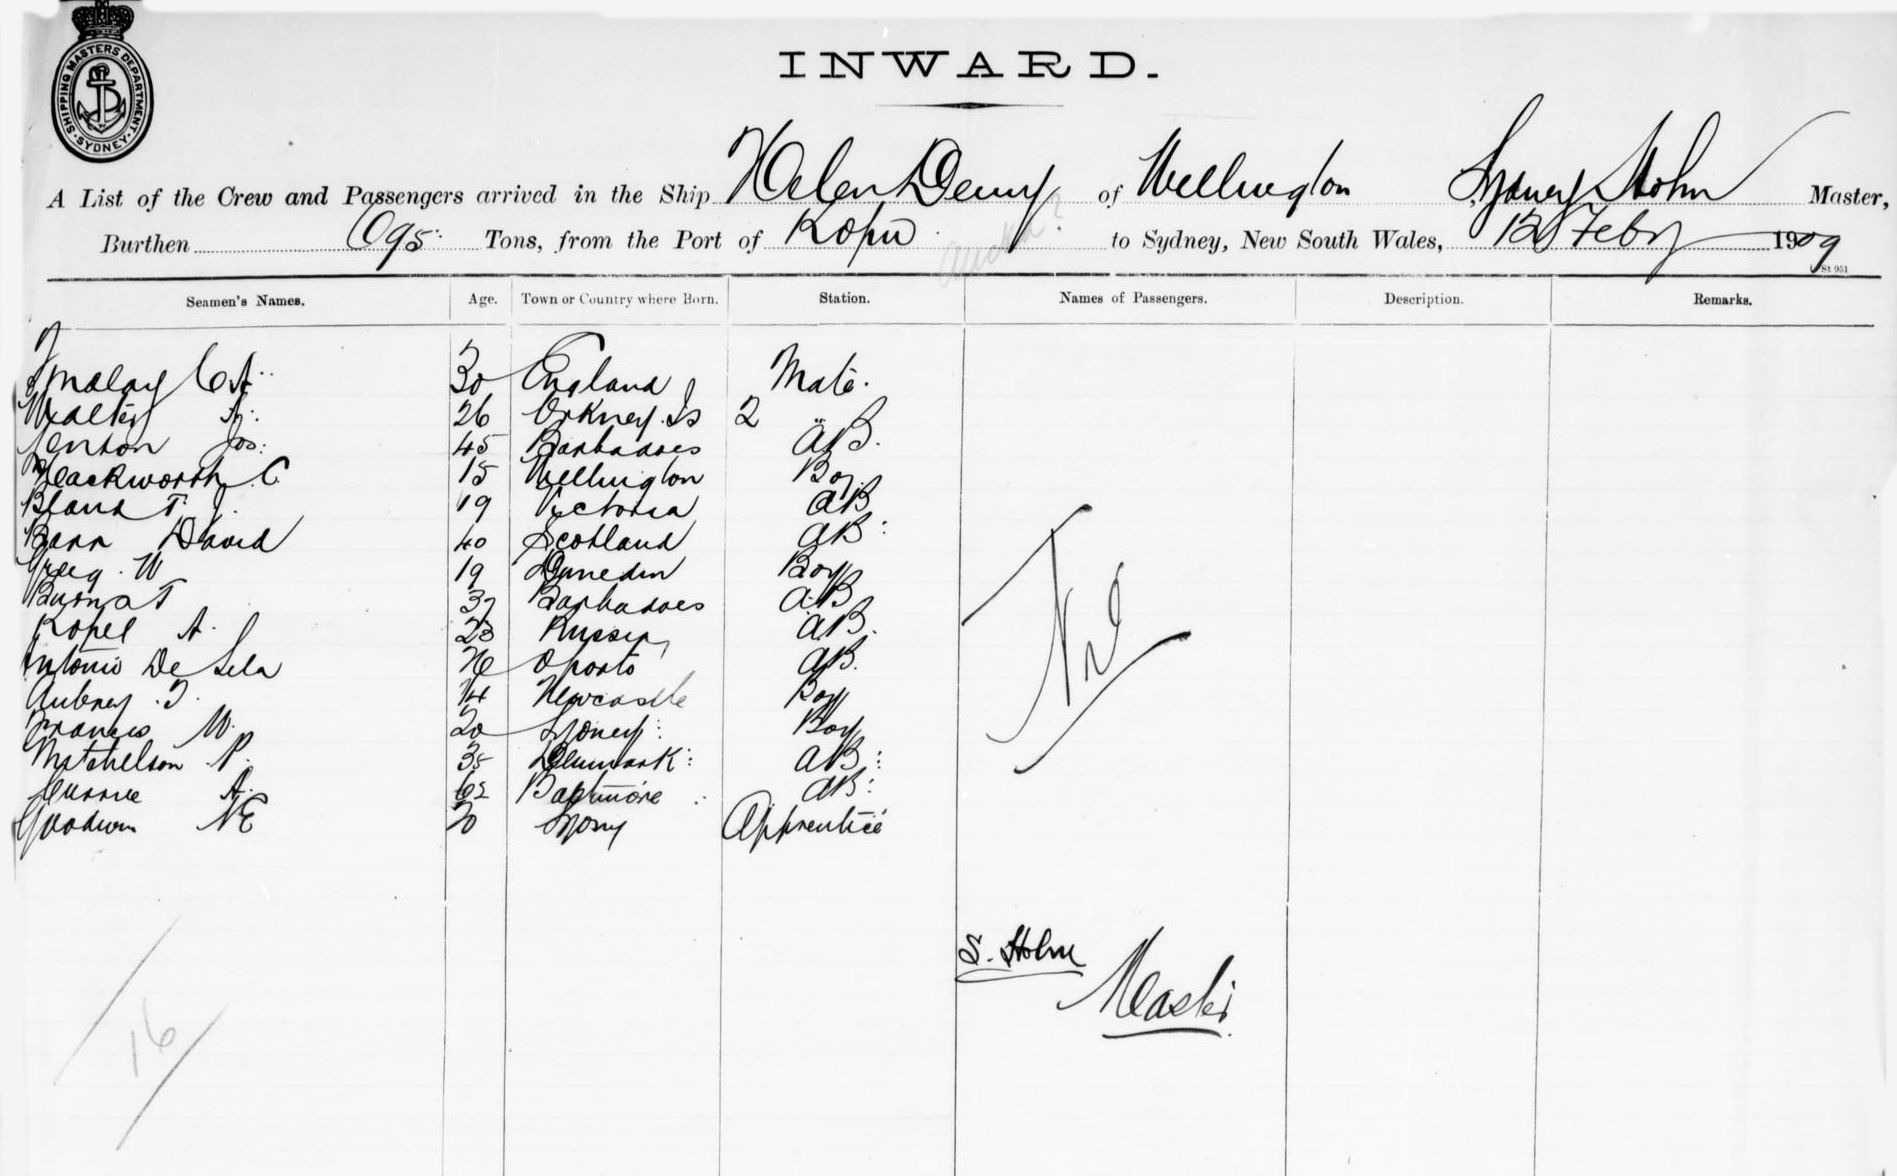 SHIPPING MASTERS DEPARTMENT. SYDNEY
INWARD.
A List of the Crew and Passengers arrived in the Ship Helen Denny of Wellington Sydney Holm Master,
Burthen 695 Tons, from the Port of Kopu to Sydney, New South Wales, 12 Feby 1909
St 951
Seamen's Names. Age. Town or Country where Born. Station. Names of Passengers. Description. Remarks.
30 England Mate.
Walter 26 Orkney Is 2 "
Jos: 45 Barbadoes AB.
Mackworth C 15 Wellington Boy
Bland T. J. 19 Victoria AB
Barr David 40 Scotland AB:
Greig. W 19 Dunedin Boy
T 37 Barbadoes AB
Kopel A. 23 Russia AB.
Antonio De Sela Oporto AB.
Aubrey. 14 Newcastle Boy
Francis W. 20 Sydney: Boy
Mitchelson P. 35 Denmark: AB:
Currie A. 62 Baltimore AB:
Goodwin NE 20 Sydney Apprentice
Nil
S. Holm
Master
16